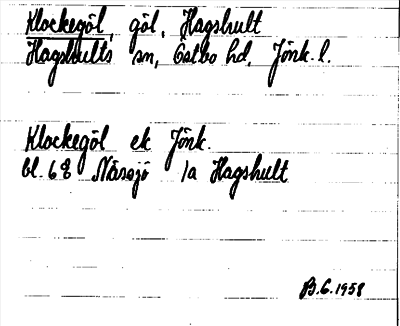 Klockegöl, göl, Hagshult
Hagshults sn, Östbo hd, Jönk. l.
Klockegöl ek Jönk.
bl. 68 Nässjö 1a Hagshult
B.G. 1958